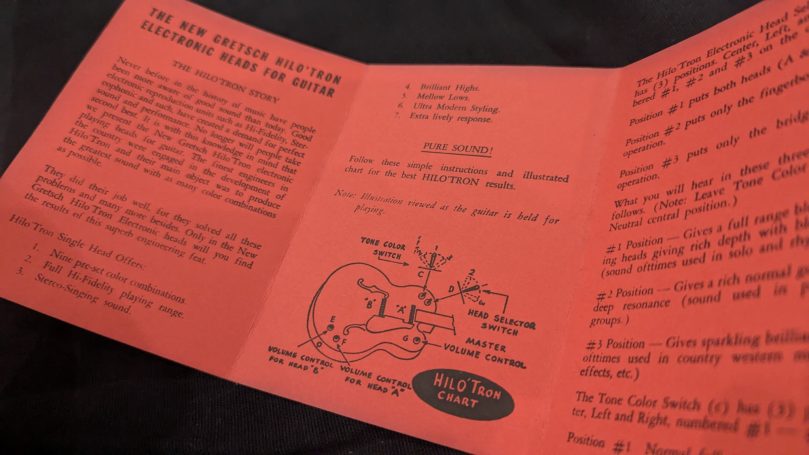 THE NEW GRETSCH HILO'TRON
ELECTRONIC HEADS FOR GUITAR
THE HILO'TRON STORY
Never before in the history of music have people
been more aware of good sound than today. Good
electronic reproduction units such as Hi-Fidelity, Ster-
eophonic, and such, have created a demand for perfect
sound and performance. No longer will people take
second best. It is with this knowledge in mind that
we present the New Gretsch Hilo'Tron electronic
playing heads for guitar. The finest engineers in
the country were engaged in the development of
Hilo'Tron and their main object was to produce
the greatest sound with as many color combinations
as possible.
They did their job well, for they solved all these
problems and many more besides. Only in the New
Gretsch Hilo'Tron Electronic heads will you find
the results of this superb engineering feat.
Hilo'Tron Single Head Offers:
1. Nine pre-set color combinations.
2. Full Hi-Fidelity playing range.
3. Stereo-Singing sound.
4. Brilliant Highs.
5. Mellow Lows.
6. Ultra Modern Styling.
7. Extra lively response.
PURE SOUND!
Follow these simple instructions and illustrated
chart for the best HILO'TRON results.
Note: Illustration viewed as the guitar is held for
playing.
TONE COLOR
SWITCH
1
C
2
D
1
"B"
"A"
HEAD SELECTOR
SWITCH
E
F
G
MASTER
VOLUME CONTROL
VOLUME CONTROL
FOR HEAD "B"
VOLUME CONTROL
FOR HEAD "A"
HILO'TRON
CHART
The Hilo'Tron Electronic Head Se
has (3) positions. Center, Left, a
bered #1, #2 and #3 on the
Position #1 puts both heads (A &
Position #2 puts only the fingerb
operation.
Position #3 puts only the bridg
operation.
What you will hear in these three
follows. (Note: Leave Tone Color
Neutral central position.)
#1 Position — Gives a full range bl
ing heads giving rich depth with b
(sound ofttimes used in solo and rh
#2 Position — Gives a rich normal g
deep resonance (sound used in p
groups.)
#3 Position — Gives sparkling brillia
ofttimes used in country western
effects, etc.)
The Tone Color Switch (c) has (3)
ter, Left and Right, numbered #1 —
Position #1 Normal